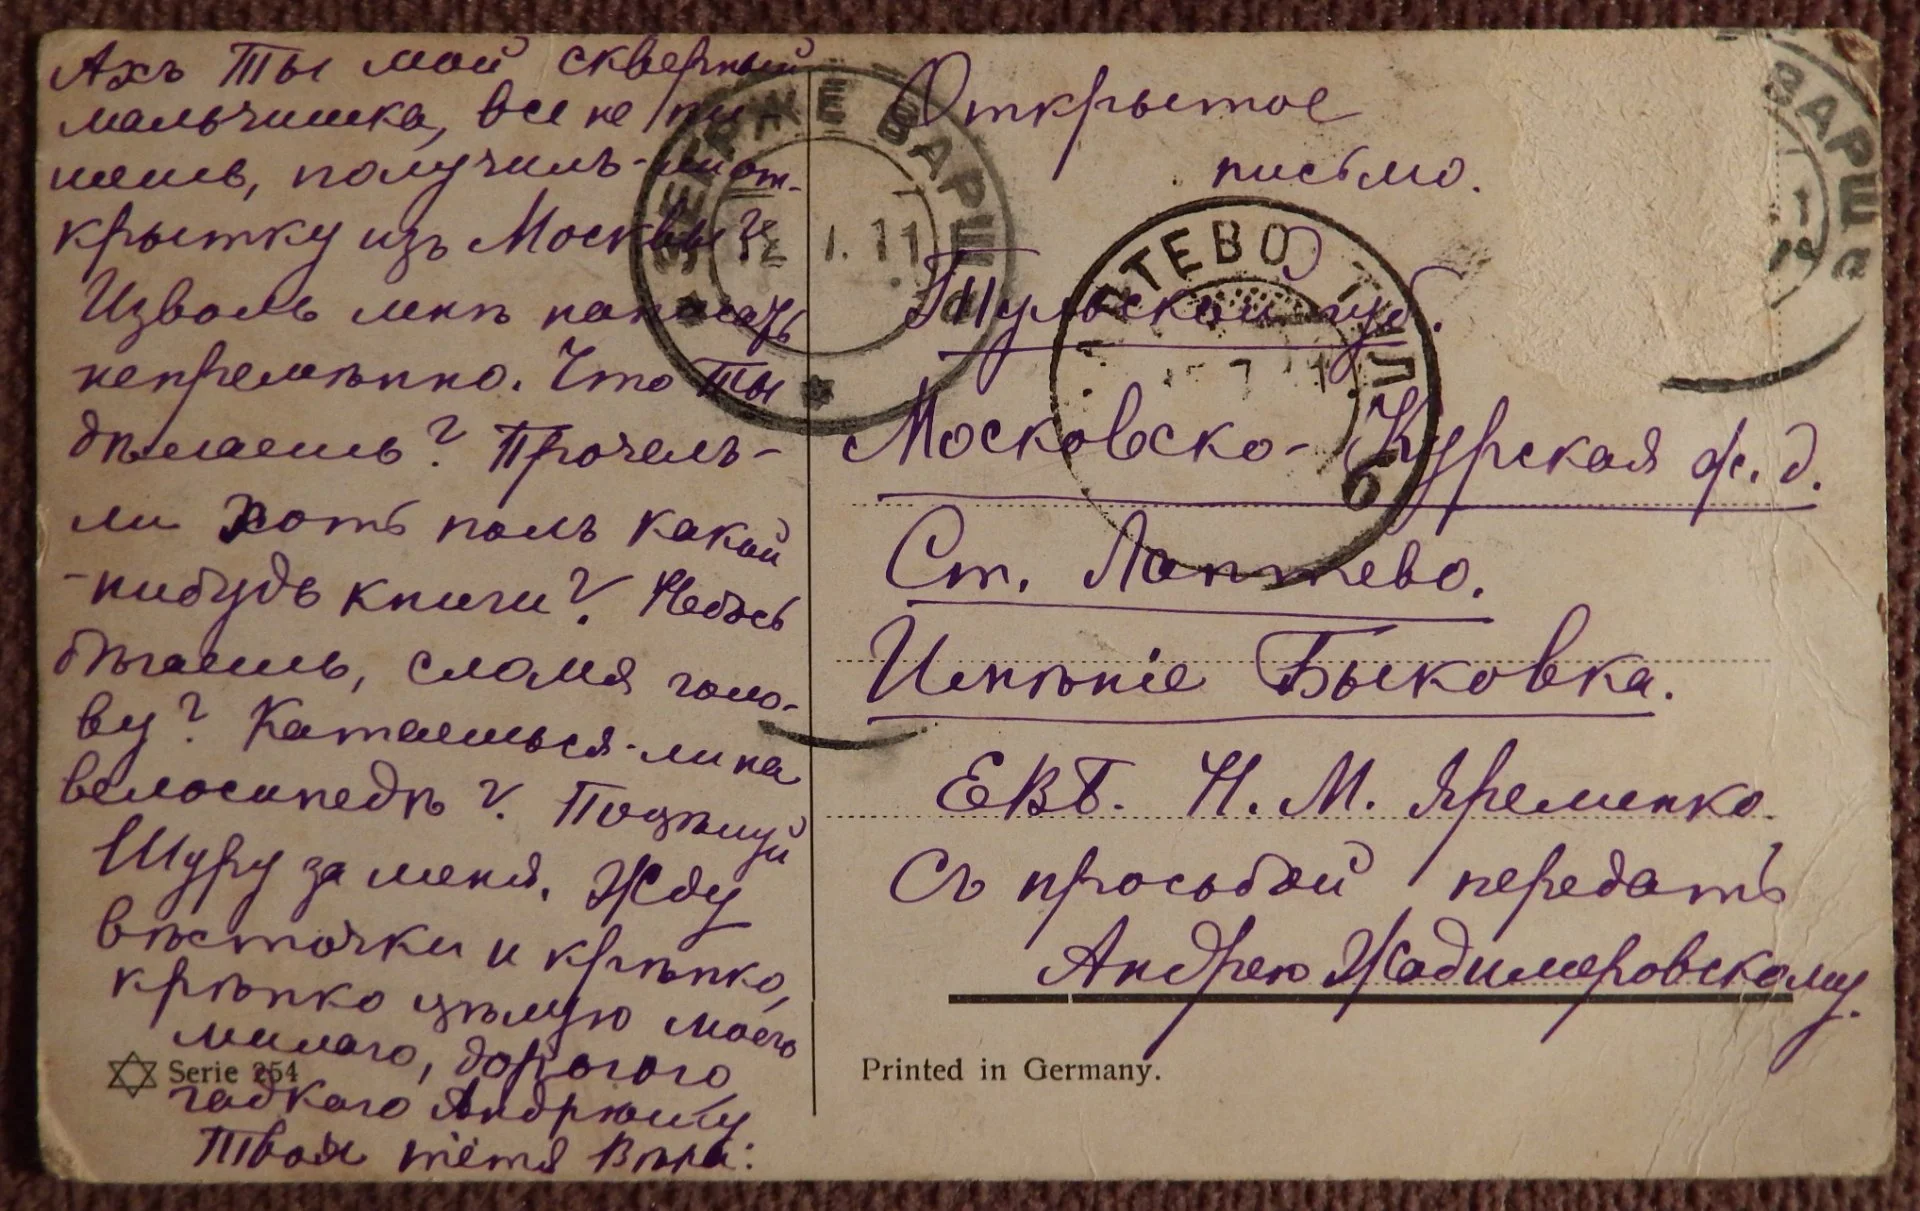 Ахъ Ты мой скверный
мальчишка, все не пи
шешь, получилъ-ли от-
крытку изъ Москвы?
Изволь мнѣ написать
непремѣнно. Что Ты
дѣлаешь? Прочелъ-
ли хоть полъ какой
-нибудь книги? Небось
бѣгаешь, сломя голо-
ву? Катаешься-ли на
велосипедѣ? Поцѣлуй
Шуру за меня. Жду
вѣсточки и крѣпко,
крѣпко цѣлую моего
милаго, дорогого
гадкаго Андрюшу
Твоя тётя Вѣра.
Serie 254
Открытое
письмо.
Тульской губ.
Московско-Курская ж. д.
Ст. Лаптево.
Имѣніе Быковка.
ЕВБ. Н. М. Яременко.
Съ просьбой передать
Андрею Жадимеровскому.
Printed in Germany.
ЗЕГРЖЕ ВАРШ
12 7. 11
ПТЕВО ТУЛ
7 11
б
ВАРШ